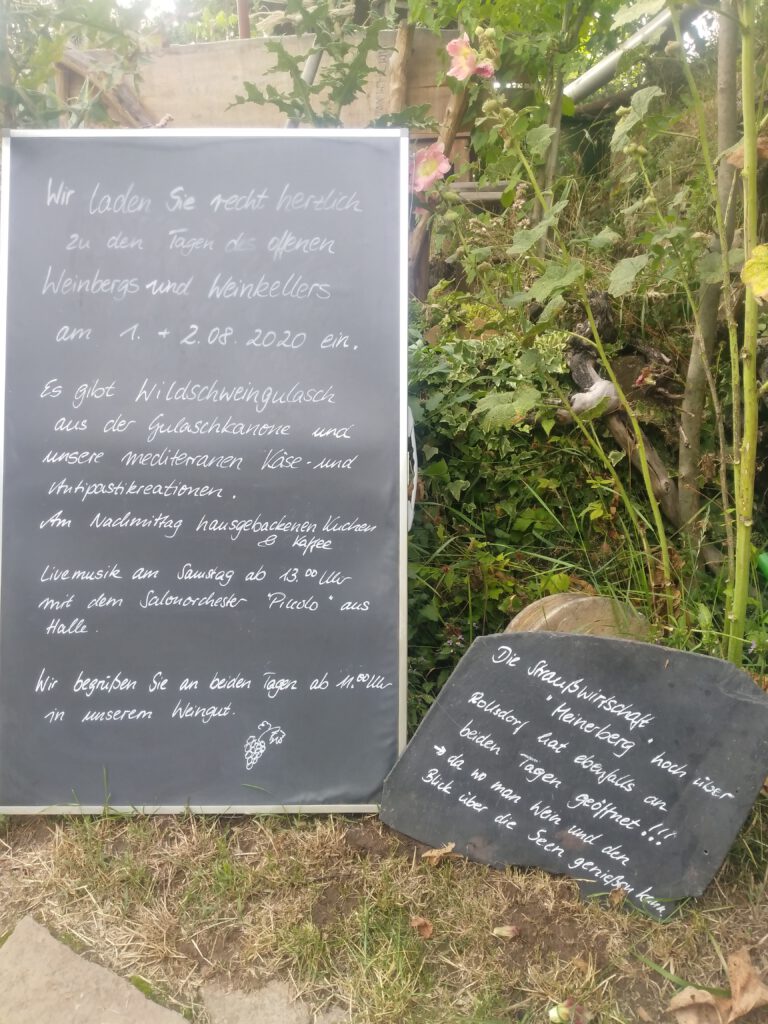 Wir laden Sie recht herzlich
zu den Tagen des offenen
Weinbergs und Weinkellers
am 1. + 2.08.2020 ein.
Es gibt Wildschweingulasch
aus der Gulaschkanone und
unsere mediterranen Käse- und
Antipastikreationen.
Am Nachmittag hausgebackenen Kuchen
& Kaffee
Livemusik am Samstag ab 13.00 Uhr
mit dem Salonorchester "Piccolo" aus
Halle.
Wir begrüßen Sie an beiden Tagen ab 11.00 Uhr
in unserem Weingut.
Die Straußwirtschaft
"Heinerberg" hoch über
Rollsdorf hat ebenfalls an
beiden Tagen geöffnet!!!
→ da wo man Wein und den
Blick über die Seen genießen kann